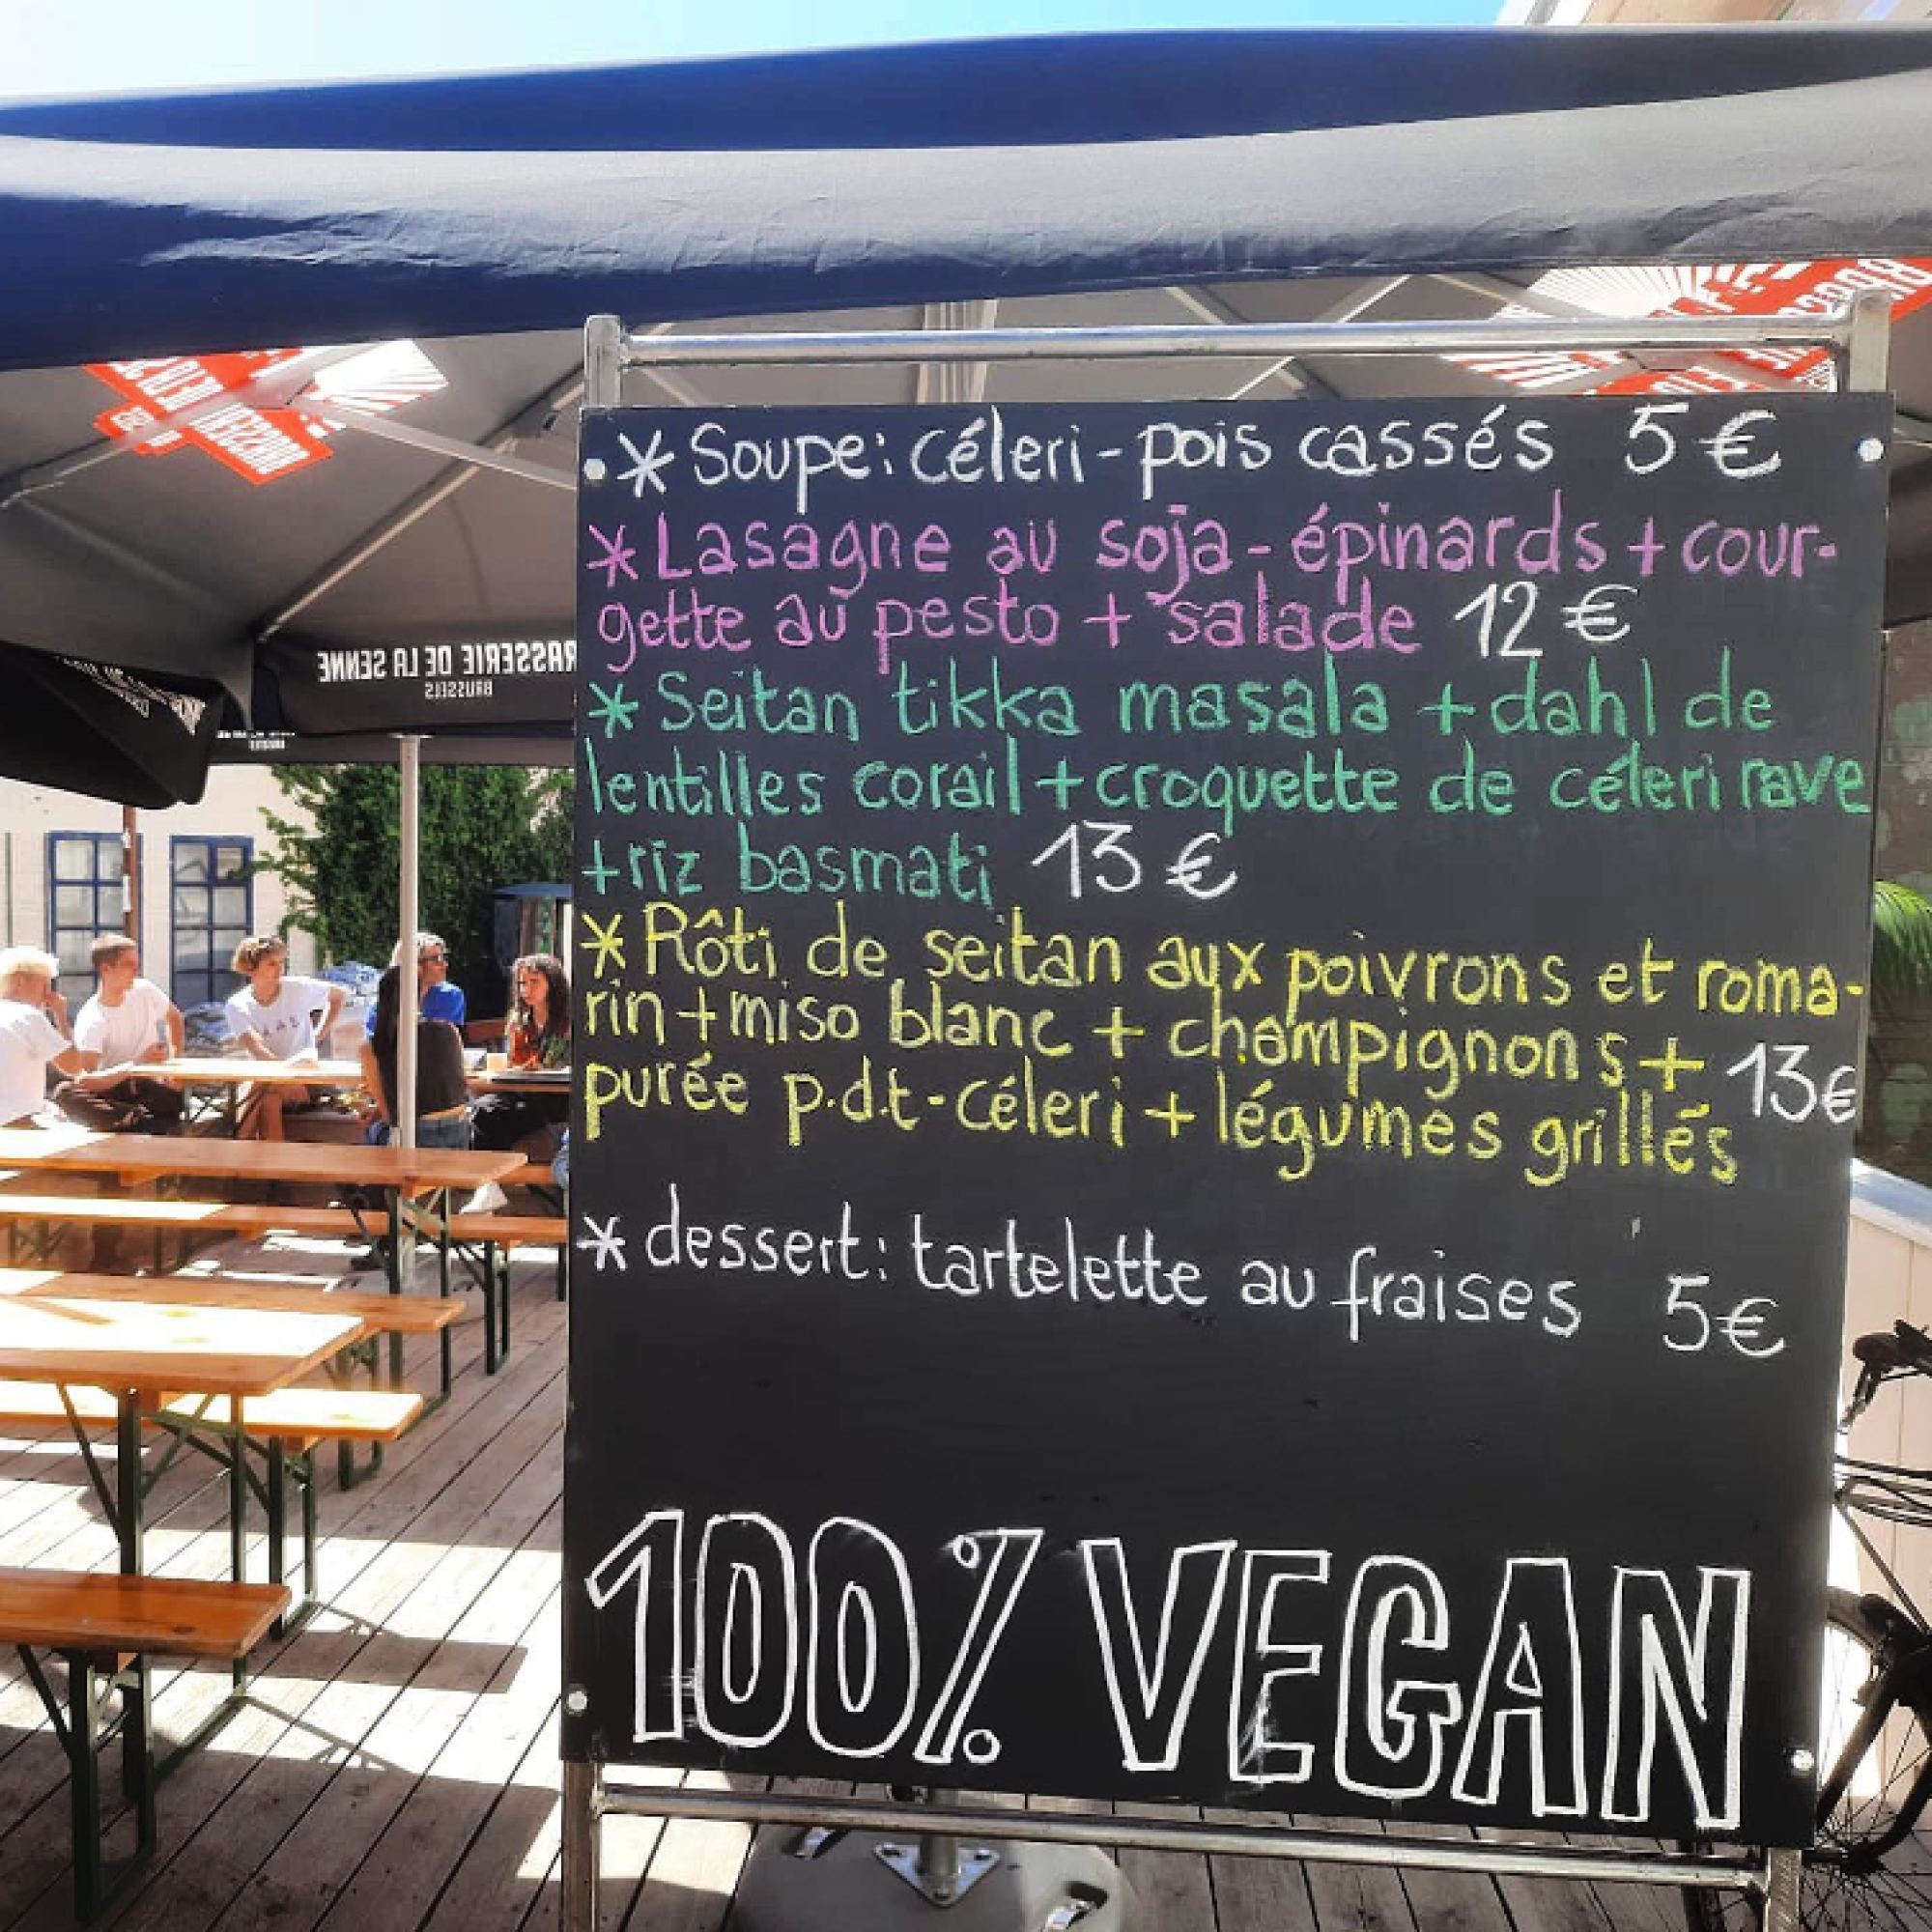 * Soupe: céleri-pois cassés 5 €
* Lasagne au soja-épinards + cour-
gette au pesto + salade 12 €
* Seitan tikka masala + dahl de
lentilles corail + croquette de céleri rave
+ riz basmati 13 €
* Rôti de seitan aux poivrons et roma-
rin + miso blanc + champignons + 13€
purée p.d.t-céleri + légumes grillés
* dessert: tartelette au fraises 5€
100% VEGAN
RASSERIE DE LA SENNE
BRUSSELS